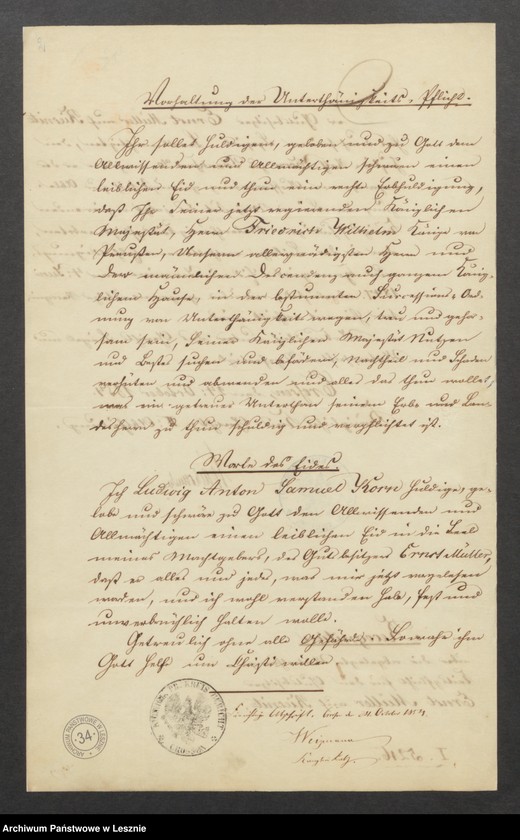 Vorhaltung der Unterthänigkeits-Pflicht.
Ihr sollet huldigen, geloben und zu Gott dem
Allwissenden und Allmächtigen schwören einen
leiblichen Eid und thun eine rechte Erbhuldigung,
daß Ihr Seiner jetzt regierenden Königlichen
Majestät, Herrn Friedrich Wilhelm Könige von
Preußen, Unserm allergnädigsten Herrn und
Dero männlichen Descendenz auch ganzem König-
lichem Hause, in der bestimmten Successions-Ord-
nung von Unterthänigkeit wegen, treu und gehor-
sam sein, Seiner Königlichen Majestät Nutzen
und Beste suchen und befördern, Nachtheil und Schaden
verhüten und abwenden und alles das thun wollet,
was ein getreuer Unterthan seinem Erb- und Lan-
desherrn zu thun schuldig und verpflichtet ist.
Worte des Eides.
Ich Ludwig Anton Samuel Korn huldige, ge-
lobe und schwöre zu Gott den Allwissenden und
Allmächtigen einen leiblichen Eid in die Seel
meines Machtgebers, des Gutsbesitzer Ernst Müller,
daß er alles und jedes, was mir jetzt vorgelesen
worden, und ich wohl verstanden habe, fest und
unverbrüchlich halten wolle.
Getreulich ohne alle So wahr ihm
Gott helfe um Christi willen
Abschrift. October
ARCHIWUM PAŃSTWOWE W LESZNIE
34
Archiwum Państwowe w Lesznie